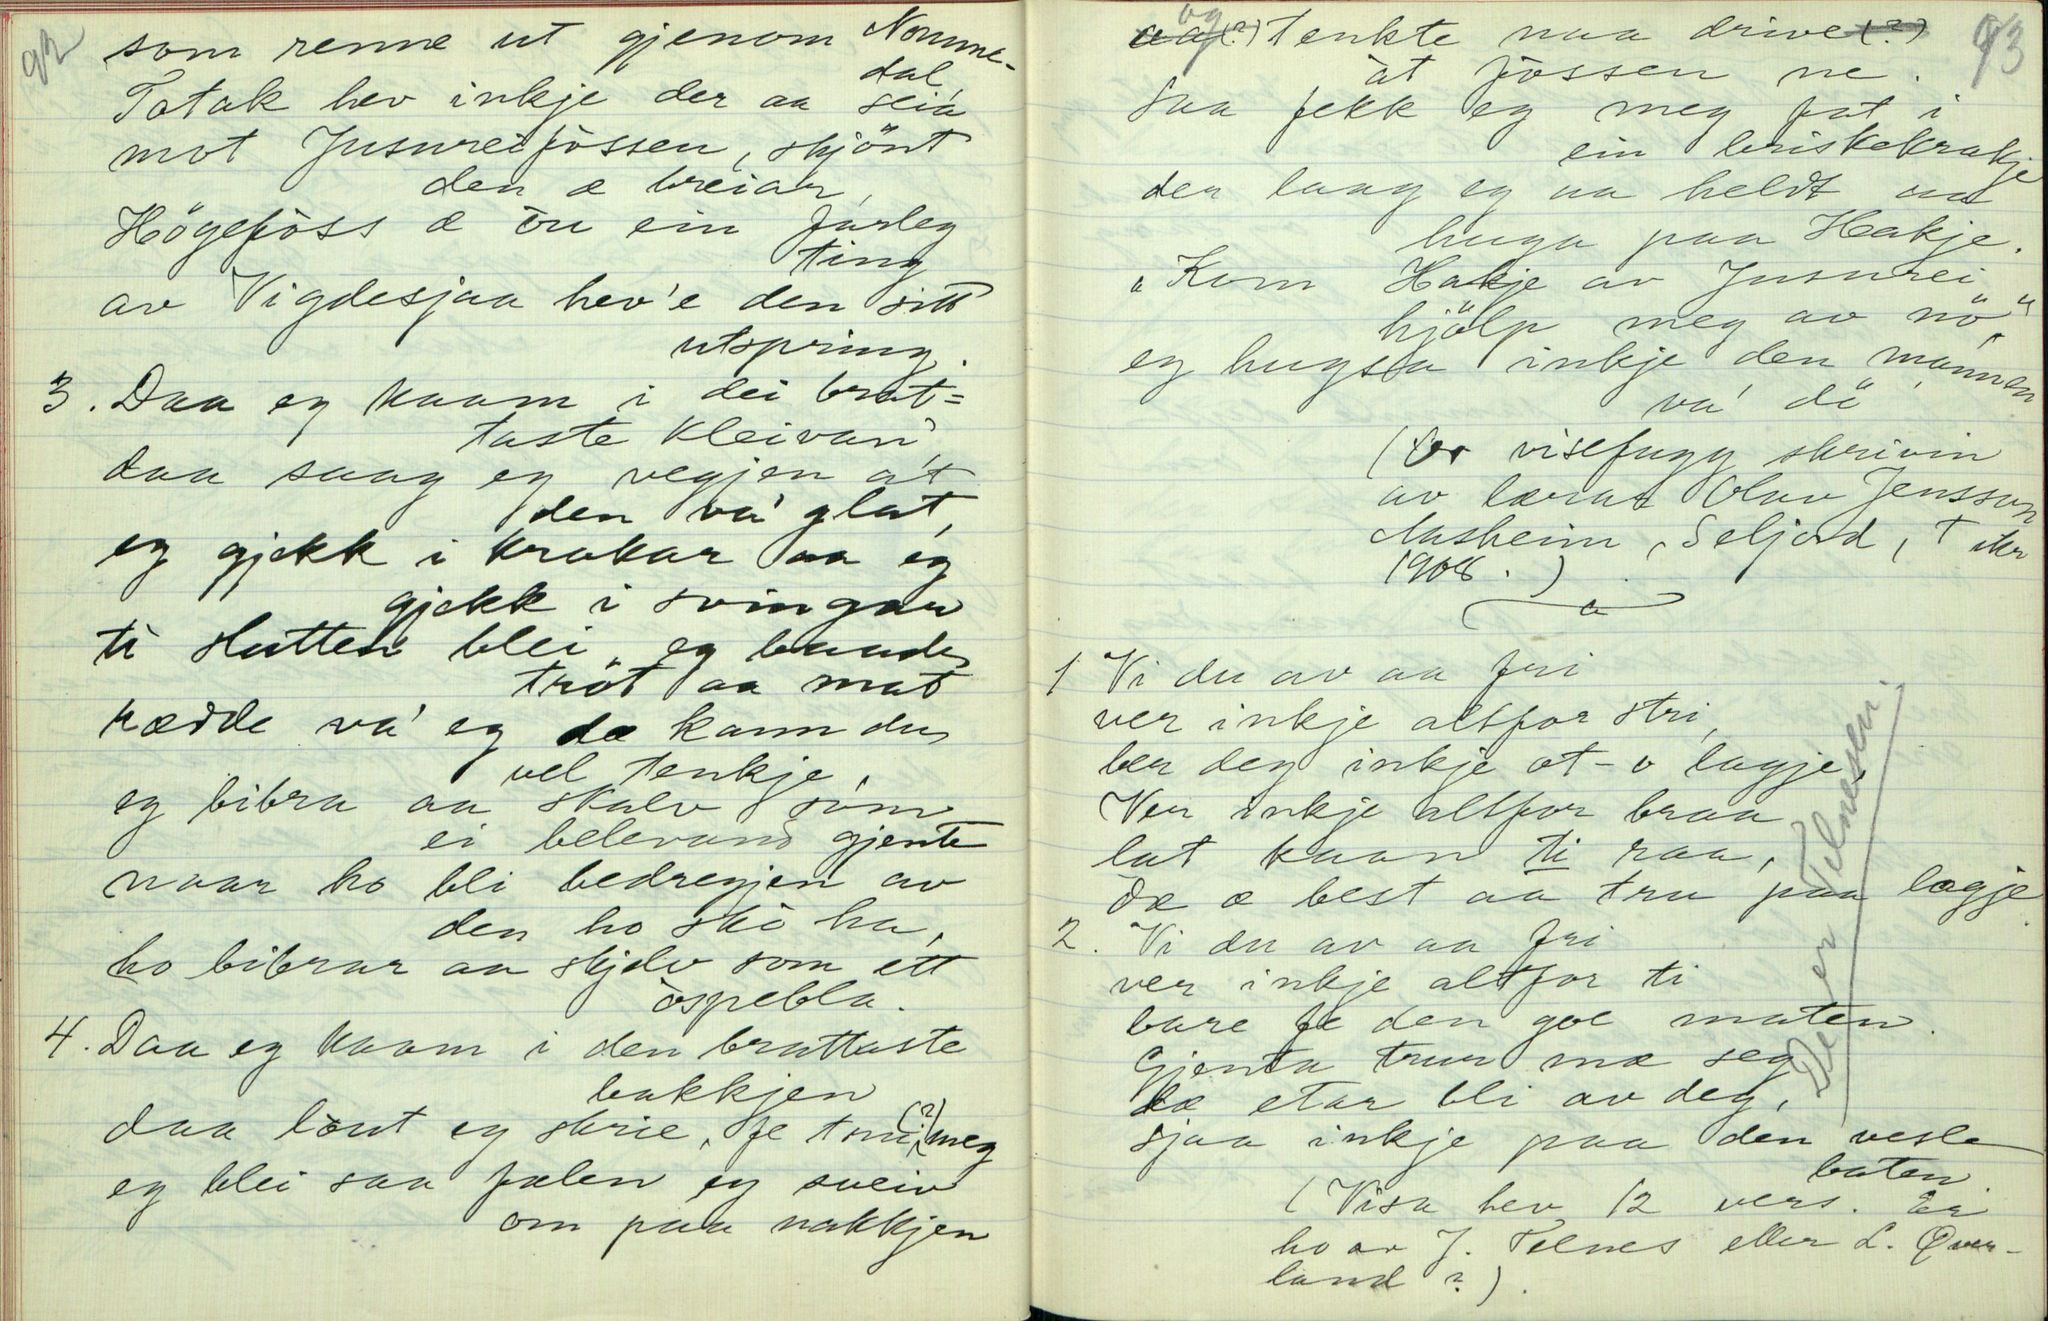 92
som renne ut gjenom Numme-
dal
Totak hev inkje der aa seia
mot Jusureifossen, skjönt
den æ breiar,
Högefoss æ òu ein fårleg
ting
av Vigdesjaa hev'e den sitt
utspring.
3. Daa eg kaam i dei brat=
taste kleivan,
daa saag eg vegjen at
den va' glat,
eg gjekk i krakar aa eg
gjekk i svingar
ti slutten blei eg baade
tröt aa mat
rædde va' eg dæ kann du
vel tenkje,
eg bibra aa skalv som
ei belevand gjente
naar ho bli bedregjen av
den ho ski ha,
ho bibrar aa skjelv som ett
òspebla.
4. Daa eg kaam i den brattaste
bakkjen
daa lout eg skrie, fe tnui(?) meg
eg blei saa falen eg sveiv
om paa nakkjen
93
og
aa(?) tenkte naa drive(?)
àt fossen ne.
Saa fekk eg meg fat i
ein briskekrakje
der laag eg aa heldt aa
huga paa Hakje.
"Kom Hakje av Jusurei
hjölp meg av nö"
eg hugsa inkje den mannen
va' dö
(Or visefugg skrivin
av lærar Olav Jensson
Aasheim, Seljord, T
1908.)
1 Vi du av aa fri
ver inkje altfor stri,
ber deg inkje at-o lagje.
Ver inkje altfor braa
lat kaan ti raa,
dæ æ best aa tru paa lagje
2. Vi du av aa fri
ver inkje altfor ti
bare fe den goe maten.
Gjenta trur mæ seg
dæ etar bli av deg,
sjaa inkje paa den vesle
baten
(Visa hev 12 vers. Er
ho av J. Telnes eller L. Øver-
land?).
De er Telnessen.